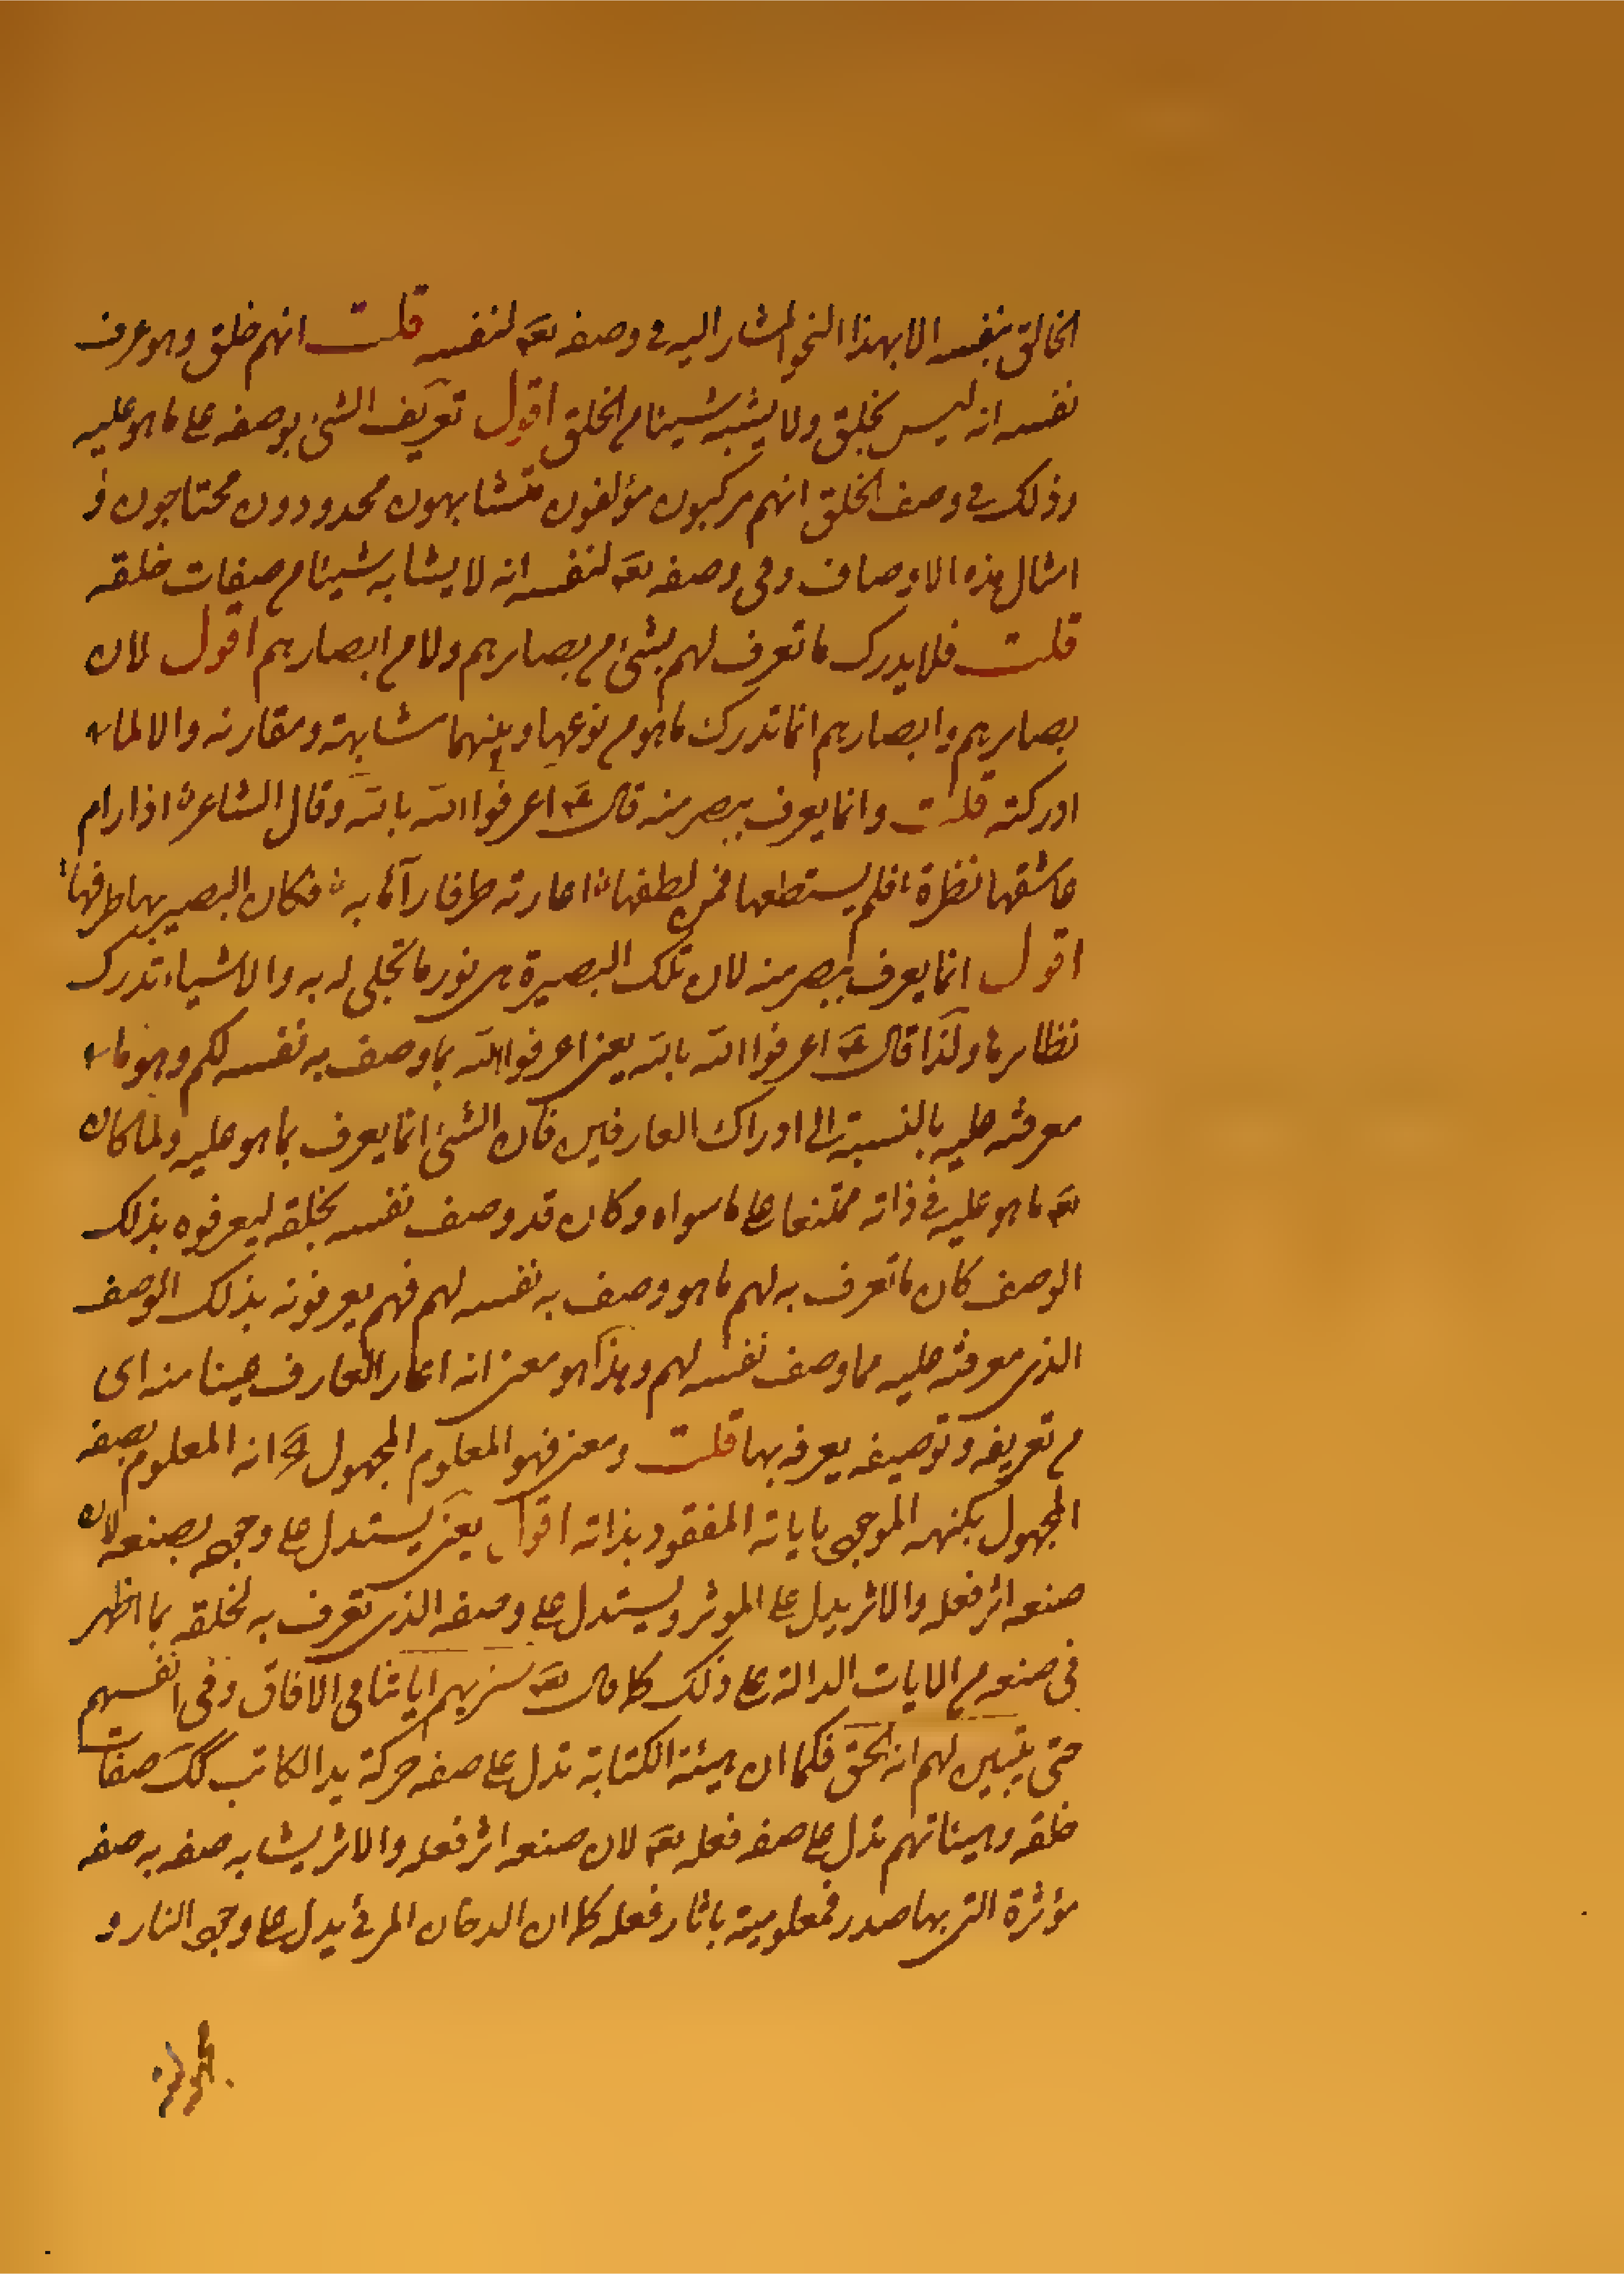 الخالق بنفسه الا بهذا النحو المشار اليه في وصفه تع لنفسه قلت انهم خلق وهو عرف
نفسه انه ليس بخلق ولا يشبه شيئا من الخلق اقول تعريف الشئ بوصفه على ما هو عليه
وذلك في وصف الخلق انهم مركبون مؤلفون متشابهون محدودون محتاجون و
امثال هذه الاوصاف وفي وصفه تع لنفسه انه لا يشابه شيئا من صفات خلقه
قلت فلا يدرك ما تعرف لهم بشئ من بصايرهم ولا من ابصارهم اقول لان
بصايرهم وابصارهم انما تدرك ما هو من نوعها وبينهما مشابهة ومقارنه والا لما
ادركته قلت وانما يعرف ببصر منه قال ع اعرفوا الله بالله وقال الشاعر اذا رام
عاشقها نظرة فلم يستطعها فمن لطفها اعارته طرفا رآها به فكان البصير بها طرفها
اقول انما يعرف ببصر منه لان تلك البصيرة هي نور ما تجلى له به والاشياء تدرك
نظايرها ولذا قال ع اعرفوا الله بالله يعني اعرفوا الله بما وصف به نفسه لكم وهو ما
معرفته عليه بالنسبة الى ادراك العارفين فان الشئ انما يعرف بما هو عليه ولما كان
تع ما هو عليه في ذاته ممتنعا على ما سواه وكان قد وصف نفسه لخلقه ليعرفوه بذلك
الوصف كان ما تعرف به لهم ما هو وصف به نفسه لهم فهم يعرفونه بذلك الوصف
الذي معرفته عليه مما وصف نفسه لهم وهذا هو معنى انه اعار العارف عينا منه اى
من تعريفه وتوصيفه يعرفه بها قلت ومعنى فهو المعلوم المجهول انه المعلوم بصفه
المجهول بكنهه الموجود باياته المفقود بذاته اقول يعني يستدل على وجوده بصنعه لان
صنعه اثر فعله والاثر يدل على الموثر ويستدل على وصفه الذي تعرف به لخلقه بما اظهر
في صنعه من الايات الدالة على ذلك كما قال تع سنريهم اياتنا في الافاق وفي انفسهم
حتى يتبين لهم انه الحق فكما ان هيئة الكتابة تدل على صفه حركة يد الكاتب كك صفات
خلقه وهيئاتهم تدل على صفه فعله تع لان صنعه اثر فعله والاثر يشابه صفه به صفه
مؤثرة التي بها صدر فمعلومية باثار فعله كما ان الدخان المرئ يدل على وجود النار و